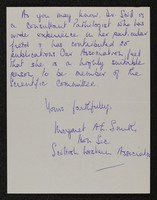 As you may know, Dr Seid is
a Consultant Pathologist who has
wide experience in her particular
field & has contributed 25
publications. Our Association feel
that she is a highly suitable
person to be member of the
Scientific Committee.
Yours faithfully,
Margaret A. Smith,
Hon Sec
Scottish Eastern Association